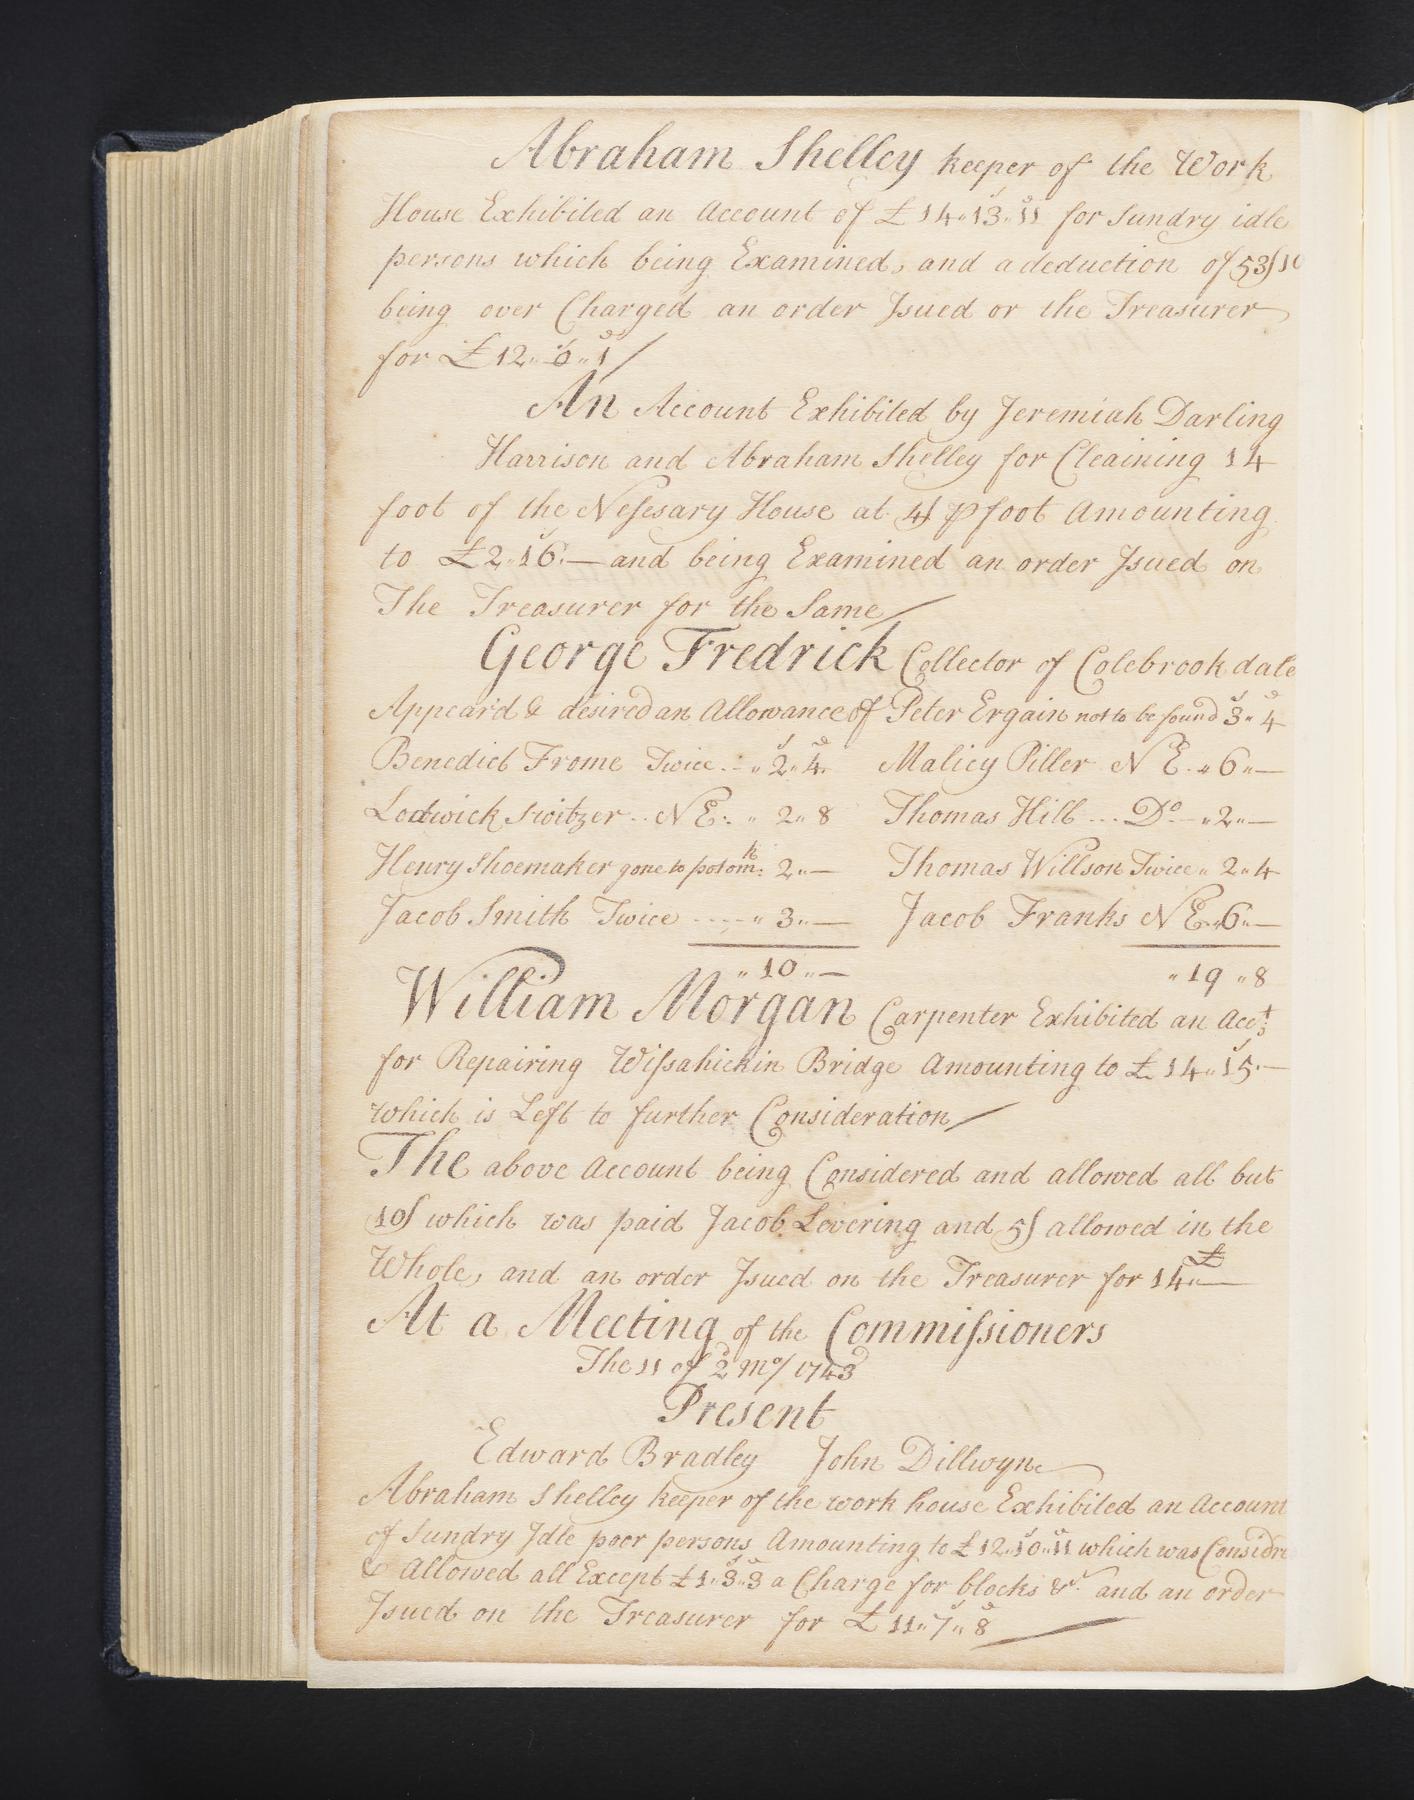 Abraham Shelley keeper of the Work
House Exhibited an Account of £14„13s„11d for Sundry idle
persons which being Examined, and a deduction of 53/10
being over Charged an order Isued or the Treasurer
for £12„0s„1d/
An Account Exhibited by Jeremiah Darling
Harrison and Abraham Shelley for Cleaining 14
foot of the Neſesary House at 4/ ꝑ foot Amounting
to £2„16s„— and being Examined an order Isued on
The Treasurer for the Same/
George Fredrick Collector of Colebrookdale
Appear'd & desired an Allowance of Peter Ergain not to be found 3s„4d
Benedict Frome Twice .. „ 2s„4d Malicy Piller N E. „6„—
Lodwick Switzer .. N E: „ 2„8 Thomas Hill ... Do — „2„—
Henry Shoemaker gone to potomk: 2„— Thomas Willson Twice „ 2„4
Jacob Smith Twice ---- „ 3„— Jacob Franks N E. „6„—
„ 10 „— „ 19 „8
William Morgan Carpenter Exhibited an Acct:
for Repairing Wiſsahickin Bridge Amounting to £14„15s.—
which is Left to further Consideration/
The above Account being Considered and allowed all but
10/ which was paid Jacob Levering and 5/ allowed in the
Whole, and an order Isued on the Treasurer for 14£„—
At a Meeting of the Commiſsioners
The 11 of 2d mo/ 1743
Present
Edward Bradley John Dillwyn
Abraham Shelley keeper of the work house Exhibited an Account
of Sundry Idle poor persons Amounting to £12„10s„11d which was Considre
& Allowed all Except £1„3s„3d a Charge for blocks &c. and an order
Isued on the Treasurer for £11„7s„8d